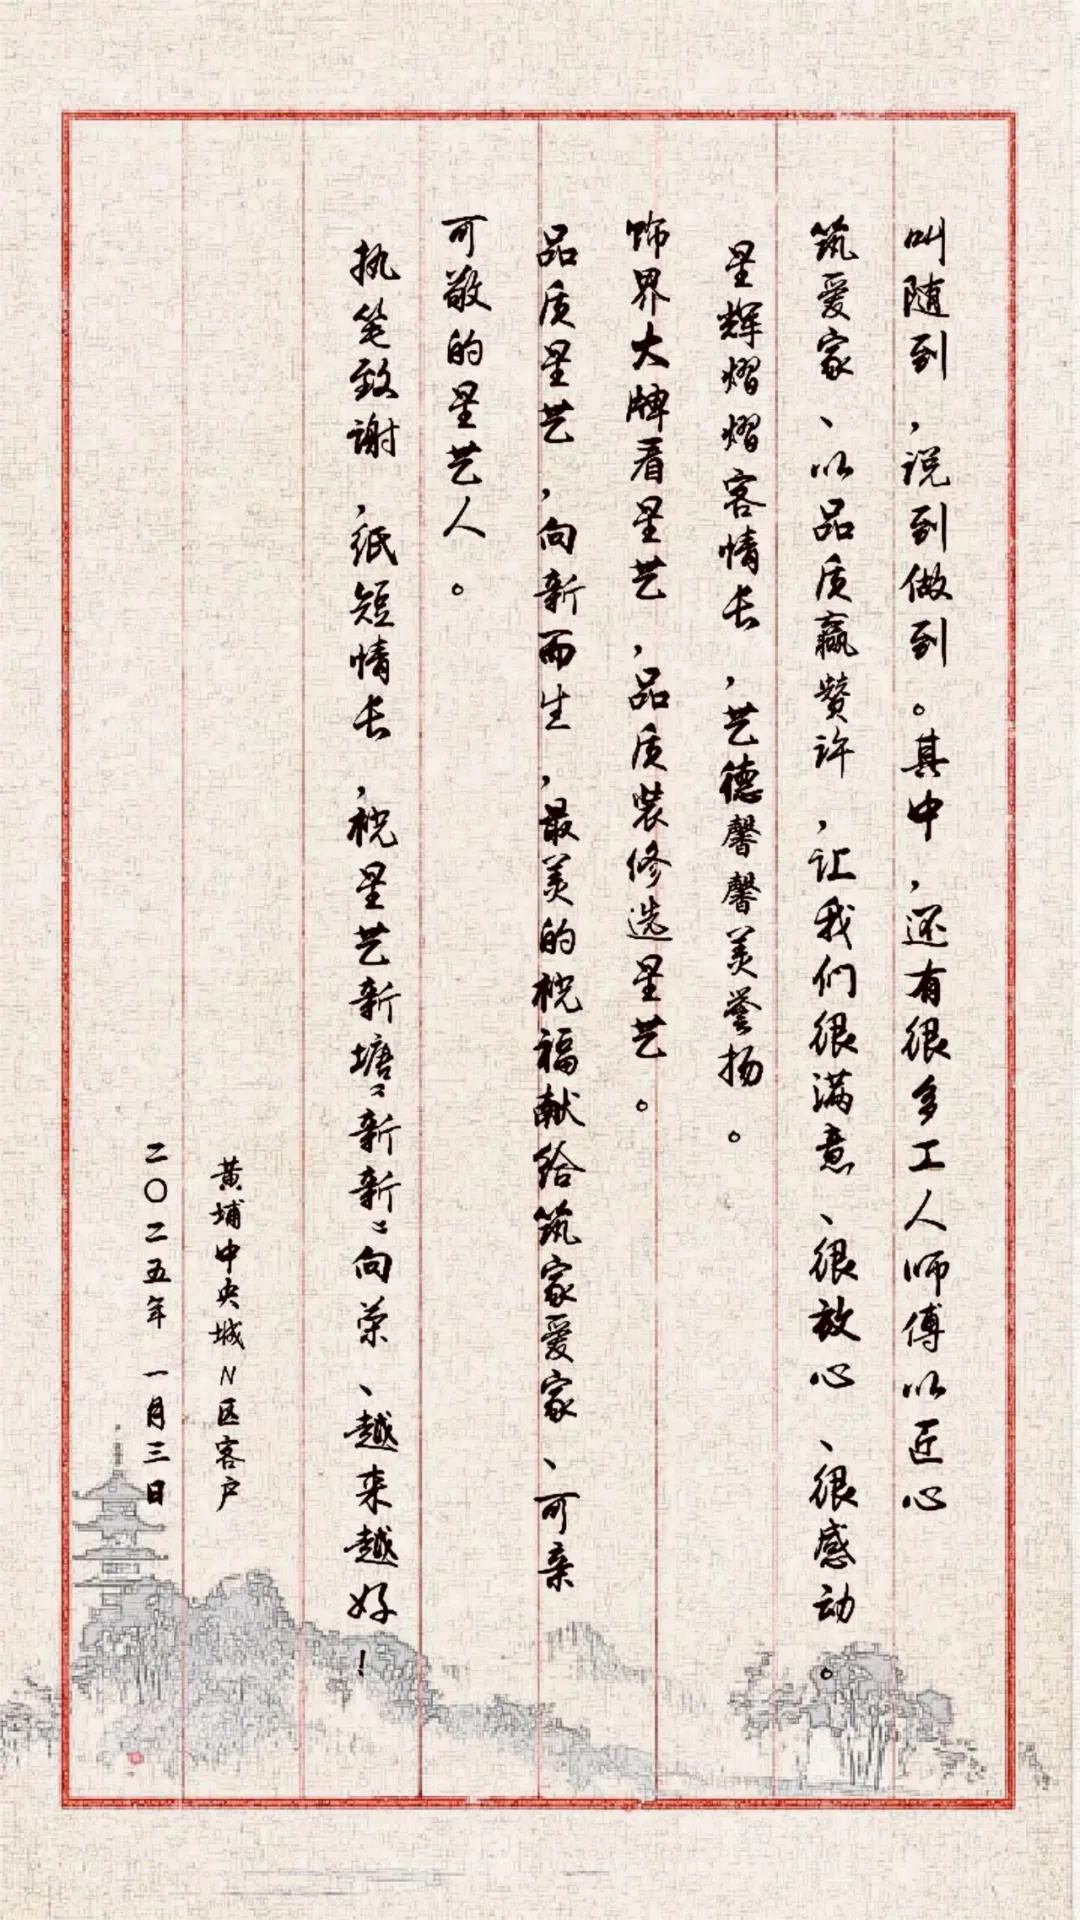 叫随到，说到做到。其中，还有很多工人师傅以匠心
筑爱家、以品质赢赞许，让我们很满意、很放心、很感动。
星辉熠熠客情长，艺德馨馨美誉扬。
饰界大牌看星艺，品质装修选星艺。
品质星艺，向新而生，最美的祝福献给筑家爱家、可亲
可敬的星艺人。
执笔致谢，纸短情长，祝星艺新塘“新新”向荣、越来越好！
黄埔中央城N区客户
二〇二五年 一月三日